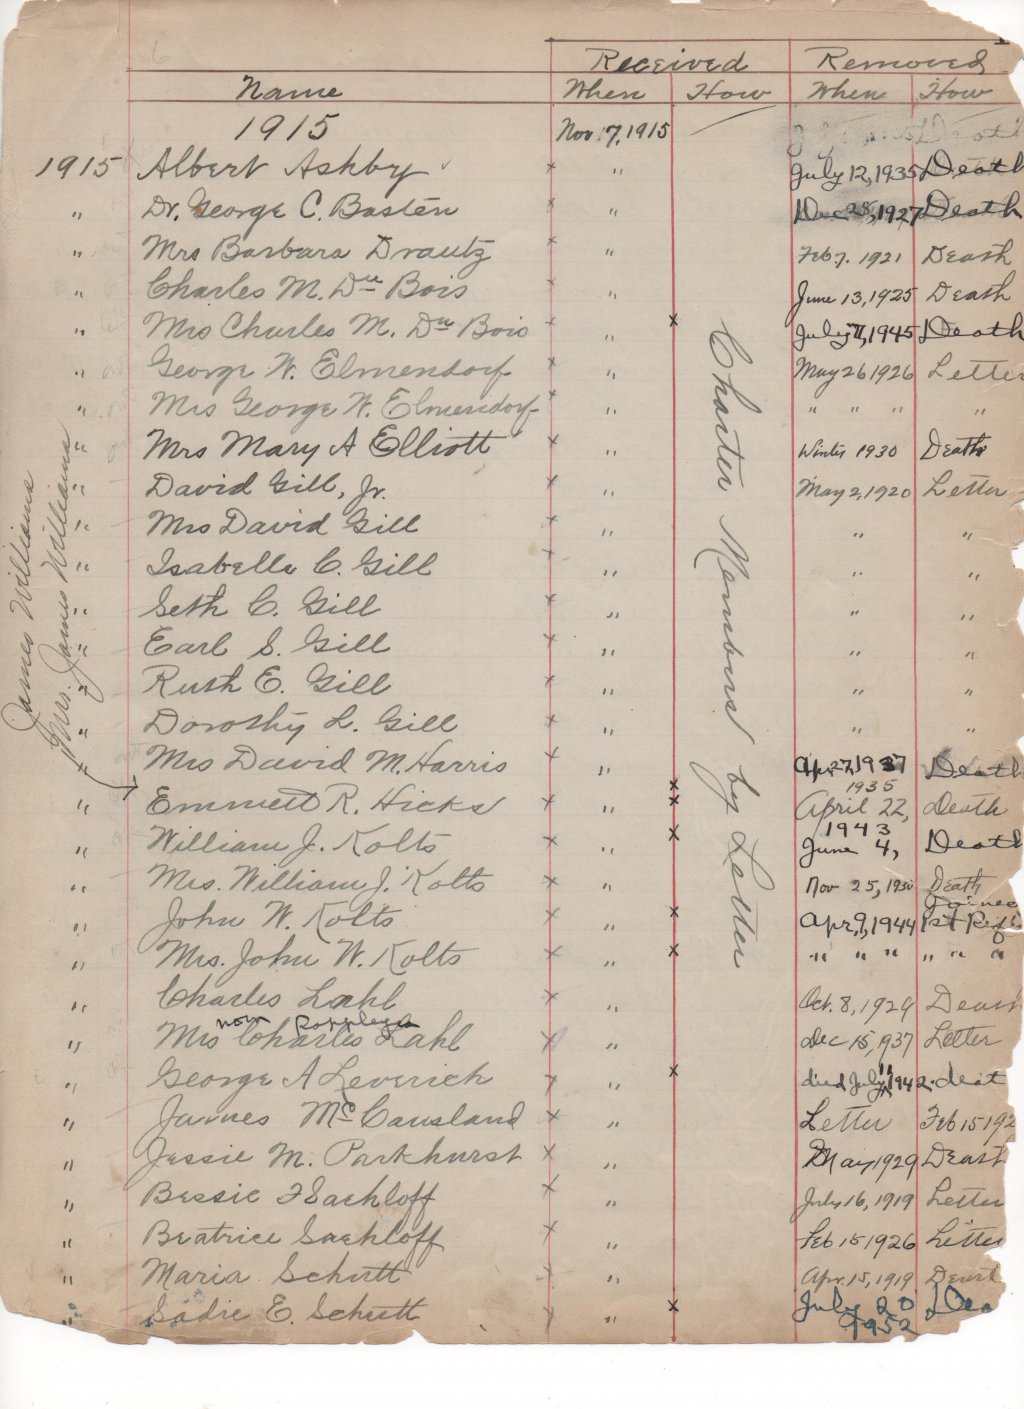 Received Removed
Name When How When How
1915 Nov. 7, 1915
1915 Albert Ashby " July 12, 1935 Death
" Dr. George C. Basten " Dec 28, 1927 Death
" Mrs Barbara Drautz " Feb 7. 1921 Death
" Charles M. Du Bois " June 13, 1925 Death
" Mrs Charles M. Du Bois x " x July 7, 1945 Death
" George W. Elmendorf x " May 26 1926 Letter
" Mrs George W. Elmendorf " " " " "
" Mrs Mary A Elliott x " Winter 1930 Death
" David Gill, Jr. x " May 2, 1920 Letter
" Mrs David Gill x " " "
" Isabelle C. Gill x " " "
" Seth C. Gill x " " "
" Earl S. Gill x " " "
" Ruth E. Gill x " " "
" Dorothy L. Gill x " " "
" Mrs David M. Harris x " Apr. 27, 1937 Death
x 1935
" Emmett R. Hicks x " x April 22, Death
1943
" William J. Kolts x " x June 4, Death
" Mrs. William J. Kolts x " Nov 25, 1930 Death
Joined
" John W. Kolts x " x Apr. 9, 1944 1st Ref
" Mrs. John W. Kolts x " x " " " " " "
" Charles Lahl x " Oct. 8, 1929 Death
now
" Mrs Charles Lahl x " Dec 15, 1937 Letter
" George A Leverich x " x died July 1942. deat
" James McCausland x " Letter Feb 15 192
" Jessie M. Parkhurst x " May 1929 Death
" Bessie F Sachloff x " July 16, 1919 Letter
" Beatrice Sachloff x " Feb 15 1926 Letter
" Maria Schutt x " Apr. 15, 1919 Death
" Sadie E. Schutt x " x July 20 Dea
1952
Charter Members by Letter
James Williams
Mrs. James Williams